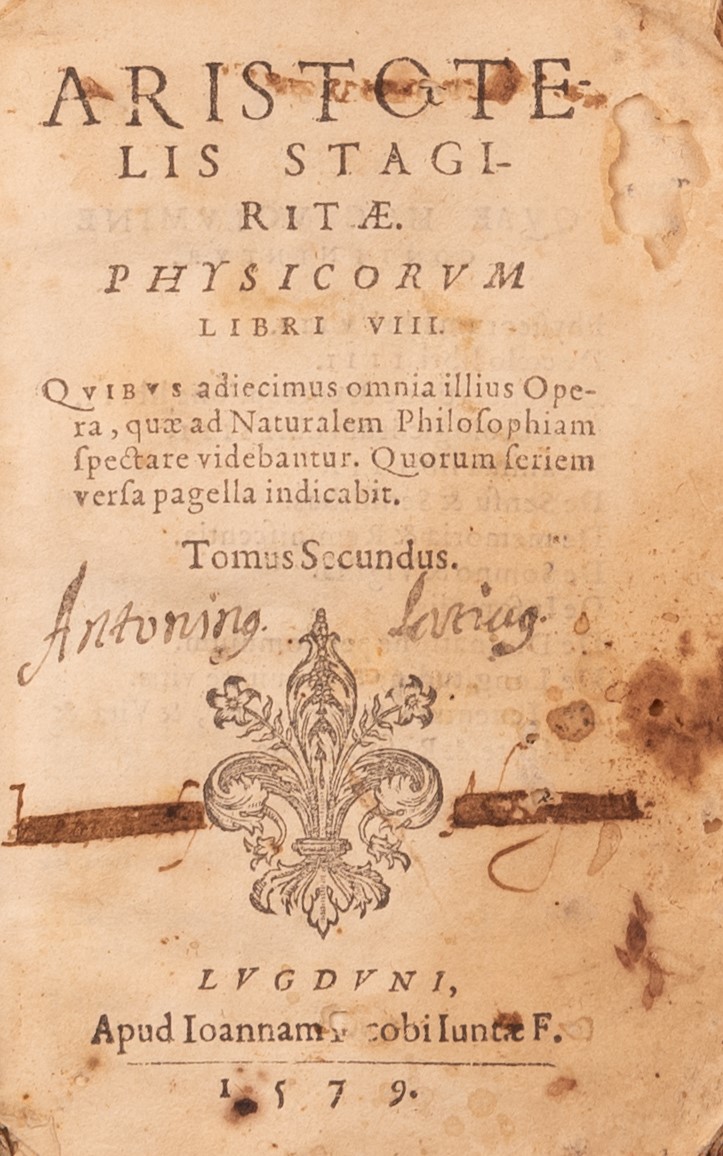 ARISTOTE-
LIS STAGI-
RITÆ.
PHYSICORVM
LIBRI VIII.
QVIBVS adiecimus omnia illius Ope-
ra, quæ ad Naturalem Philoſophiam
ſpectare videbantur. Quorum ſeriem
verſa pagella indicabit.
Tomus Secundus.
Antoninus
LVGDVNI,
Apud Ioannam cobi Iuntæ F.
1579.